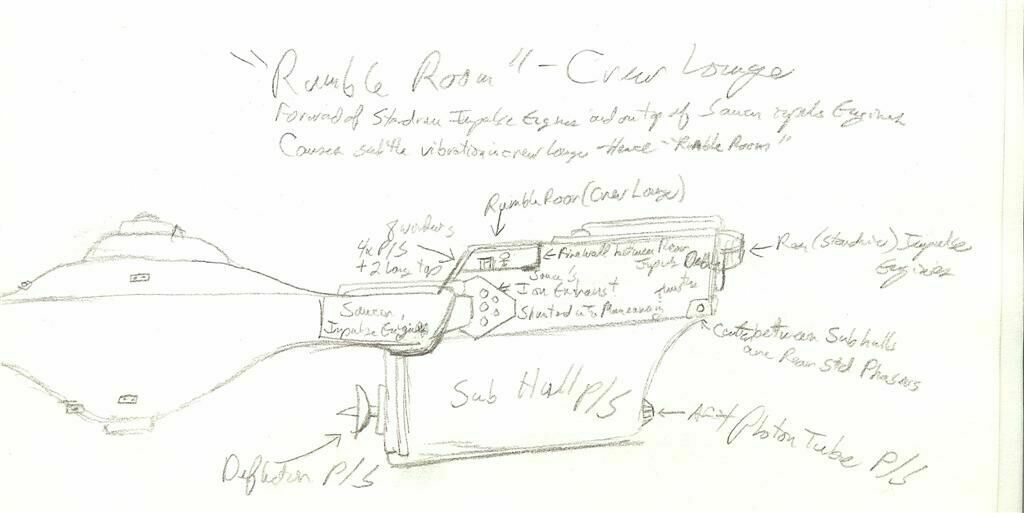 "Rumble Room" - Crew Lounge
Forward of Stardrive Impulse Engines and on top of Saucer Engines
Causes subtle vibration in crew lounge - Hence - "Rumble Room"
Rumble Room (Crew Lounge)
8 windows
4x P/S
+ 2 Long top
Firewall between Rear
Impulse
Saucer's
Ion Exhaust
Shunted into
Saucer
Impulse Engines
Rear (Stardrive) Impulse
Engines
between Sub hulls
are Rear Std Phasers
Sub Hull P/S
Aft Photon Tube P/S
Deflector P/S